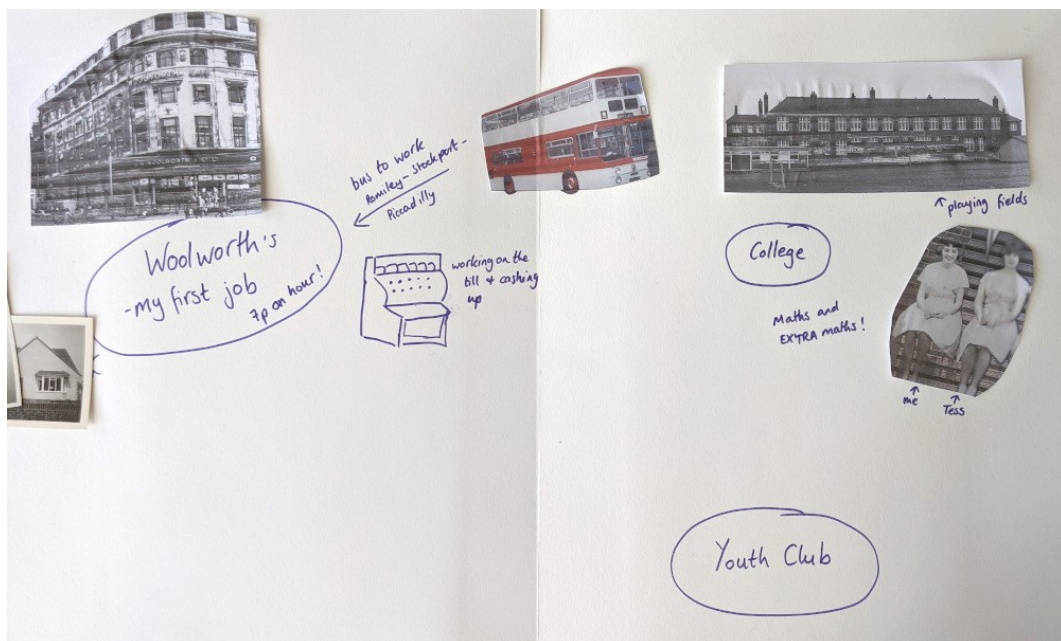 Woolworth's
-my first job
7p an hour!
bus to work
Romiley - Stockport -
Piccadilly
working on the
till + cashing
up
↑ playing fields
College
Maths and
EXTRA maths!
↑
me
↑
Tess
Youth Club